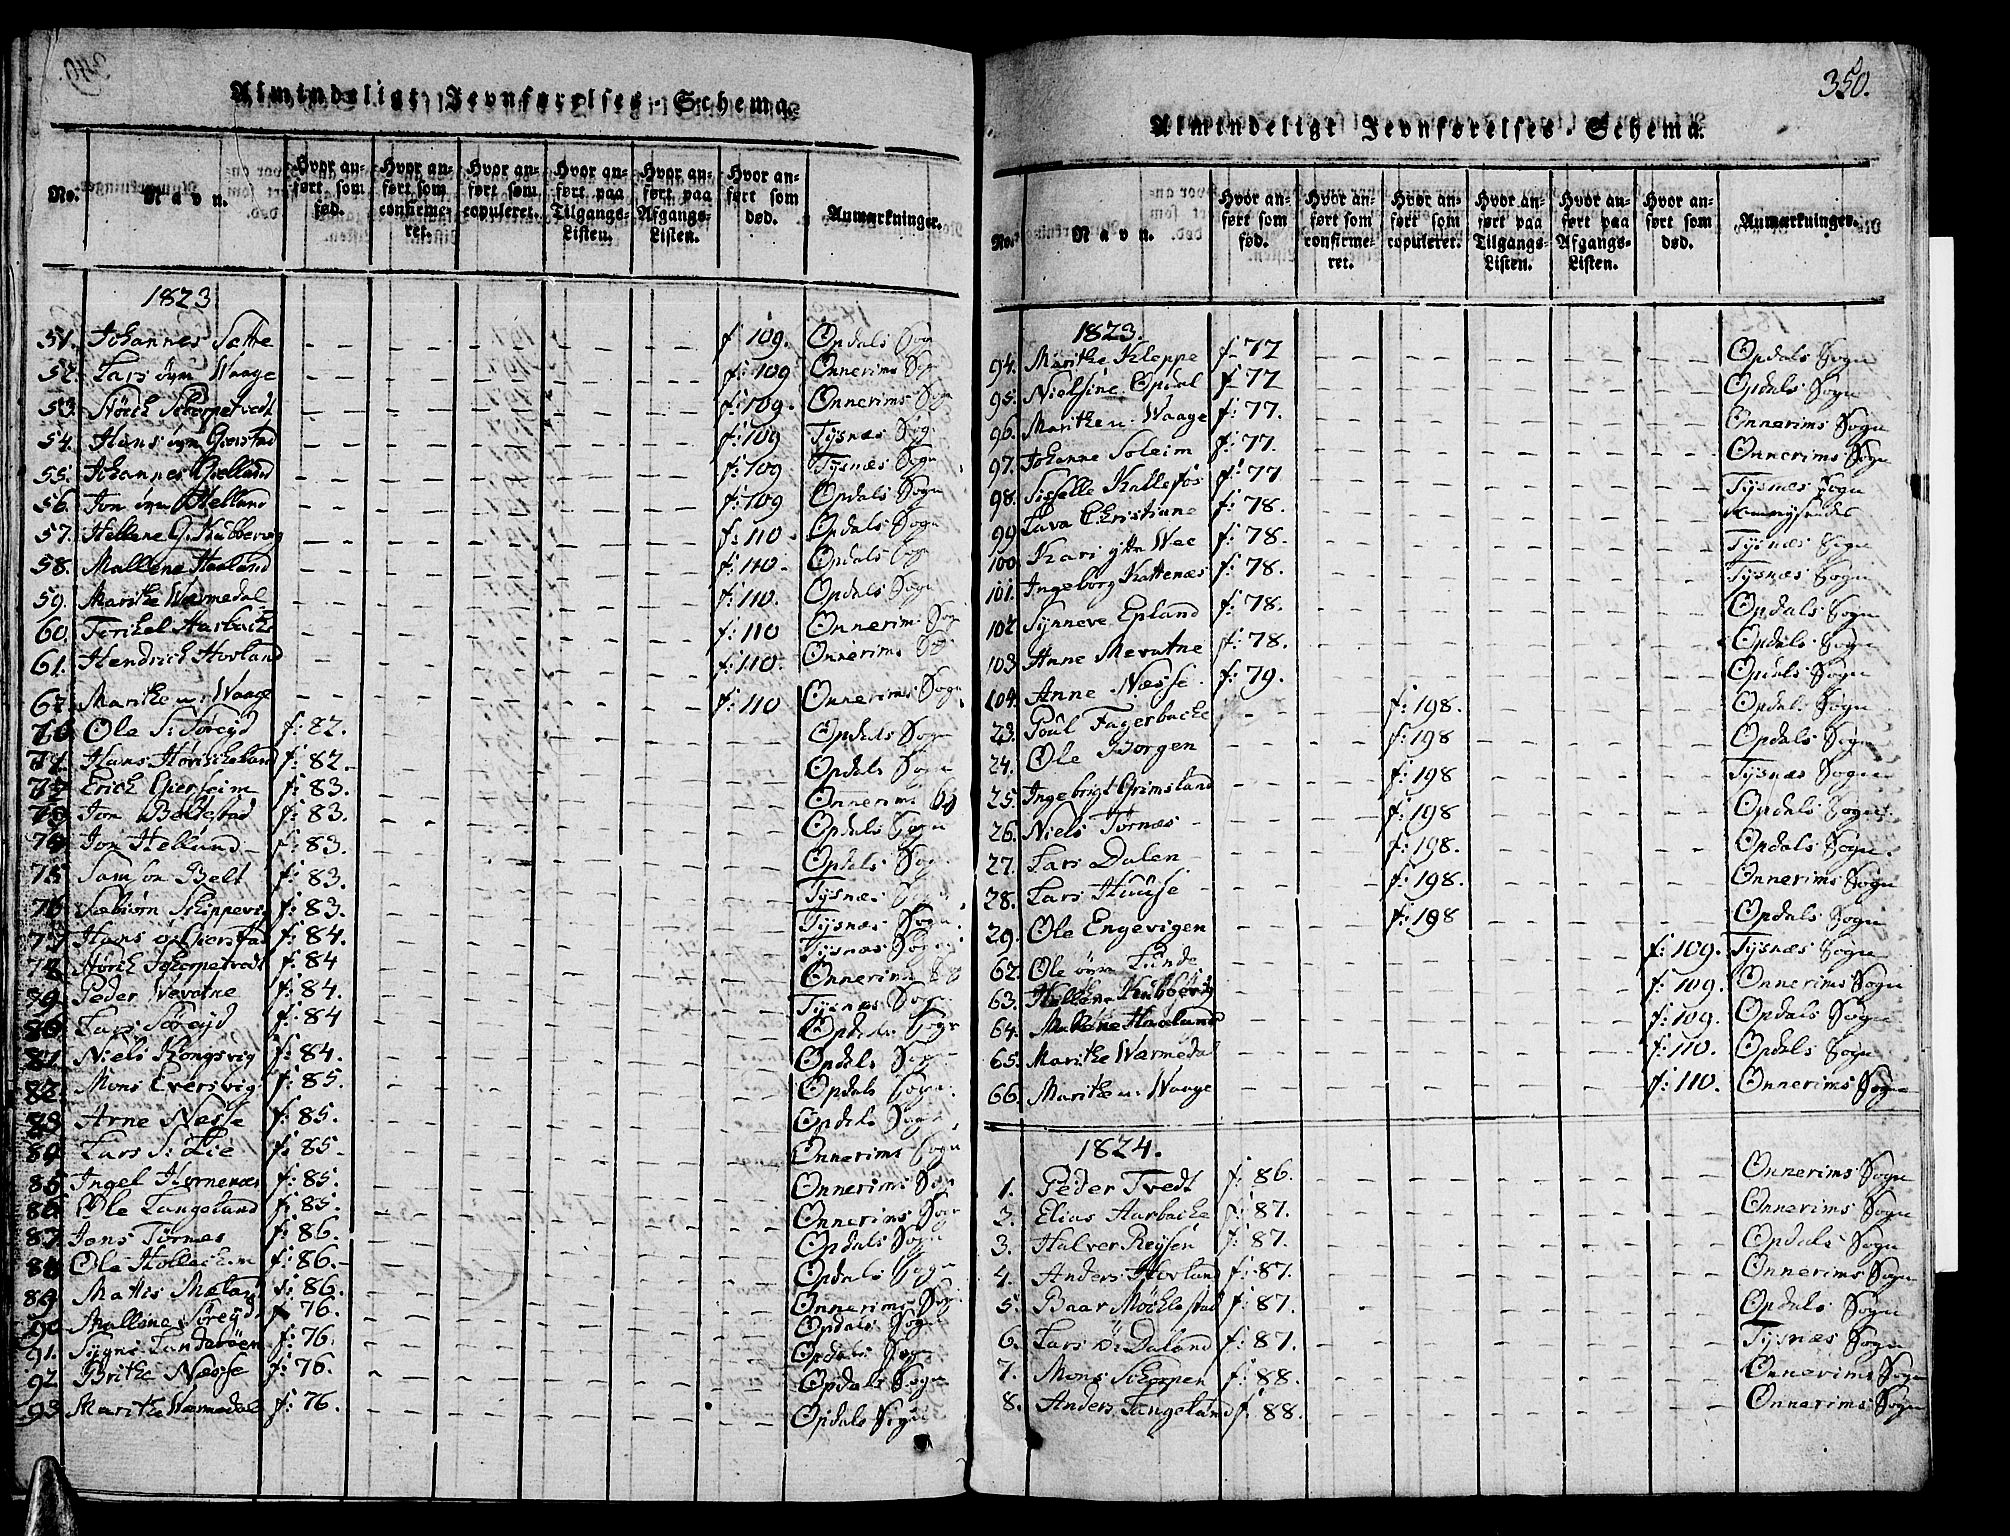 Almindeligt Jevnførelses-Schema.
No.
Navn.
Hvor anført som fød.
Hvor anført som confirmeret.
Hvor anført som copuleret.
Hvor anført paa Tilgangs-Listen.
Hvor anført paa Afgangs-Listen.
Hvor anført som død.
Anmærkninger.
1823
51. Johannes Sætte f 109. Opdals Sogn
52. Lars Waage f: 109 Onnerims Sogn
53. Skorpetvedt f: 109. Onnerims Sogn
54. Hans f: 109 Tysnæs Sogn
55. Johannes Gielland f: 109 Tysnæs Sogn
56. Jon Helland f: 109 Opdals Sogn
57. Hellene f: 110 Opdals Sogn
58. Mallene Haaland f: 110. Opdals Sogn
59. Marithe Wærmedal f: 110. Opdals Sogn
60. Torkel f: 110 Onnerims Sogn
61. Hendrich Hovland f: 110. Onnerims
Marithe Waage f: 110 Onnerims Sogn
Ole f: 82. Opdals Sogn
Hans f: 82. Opdals Sogn
Erich f: 83. Onnerims
Jon f: 83. Opdals Sogn
Jon Helland f: 83. Opdals Sogn
75. Samson Belt f: 83. Tysnæs Sogn
76. Sæbiørn Skippervig f: 83. Tysnæs Sogn
77. Hans f: 84. Tysnæs Sogn
78. Skorpetvedt f: 84 Onnerims
79. Peder f: 84. Tysnæs Sogn
80. Lars Søreyd f: 84 Opdals Sogn
81. Niels Kongsvig f: 84. Opdals Sogn
82. Mons Eversvig f: 85. Opdals Sogn
83. Arne Nesse f: 85. Opdals Sogn
84. Lars S. Lie f: 85. Onnerims Sogn
85. Ingel Hornenæs f: 85. Onnerims Sogn
86. Ole Langeland f: 85. Onnerims Sogn
87. Jens Tørnes f: 86. Opdals Sogn
88. Ole f: 86. Opdals Sogn
89. Mattis f: 86. Onnerims Sogn
90. Mallene Søreyd f: 76. Opdals Sogn
91. f: 76. Opdals Sogn
92. Brithe Næsse f: 76. Opdals Sogn
93. Marithe Wærmedal f: 76. Opdals Sogn
350.
Almindeligt Jevnførelses-Schema.
No.
Navn.
Hvor anført som fød.
Hvor anført som confirmeret.
Hvor anført som copuleret.
Hvor anført paa Tilgangs-Listen.
Hvor anført paa Afgangs-Listen.
Hvor anført som død.
Anmærkninger.
1823.
94. Marithe Kleppe f. 77 Opdals Sogn
95. Nielsine Opdal f. 77 Opdals Sogn
96. Marithe u. Waage f: 77. Onnerims Sogn
97. Johanne Soleim f: 77. Onnerims Sogn
98. Siselle f: 77 Tysnæs Sogn
99. Christiane f: 78.
100. Kari Wee f: 78. Tysnæs Sogn
101. Ingeborg Kattenæs f: 78. Tysnæs Sogn
102. Synneve Epland f: 78. Opdals Sogn
103. Anne f: 78. Opdals Sogn
104. Anne Næsse f: 79. Opdals Sogn
23. Poul Fagerbacke f: 198. Opdals Sogn
24. Ole Borgen f: 198 Opdals Sogn
25. Ingebrigt Grimsland f: 198 Tysnæs Sogn
26. Niels Tørnæs f: 198 Opdals Sogn
27. Lars Dalen f: 198. Opdals Sogn
28. Lars Huuse f: 198. Onnerims Sogn
29. Ole Engevigen f: 198 Opdals Sogn
62. Ole Lunde f: 109. Tysnæs Sogn
63. Hellene f: 109. Onnerims Sogn
64. Mallene Haaland f: 109. Opdals Sogn
65. Marithe Wærmedal f: 110. Opdals Sogn
66. Marithe u. Waage f: 110. Onnerims Sogn
1824.
1. Peder Tvedt f: 86. Onnerims Sogn
2. Elias Aarbacke f: 87. Onnerims Sogn
3. Halver Reysen f: 87. Opdals Sogn
4. Anders Hovland f: 87. Onnerims Sogn
5. Baar Møchlestad f: 87. Opdals Sogn
6. Lars Daland f: 87. Tysnæs Sogn
7. Mons f: 88. Onnerims Sogn
8. Anders Langeland f: 88. Onnerims Sogn